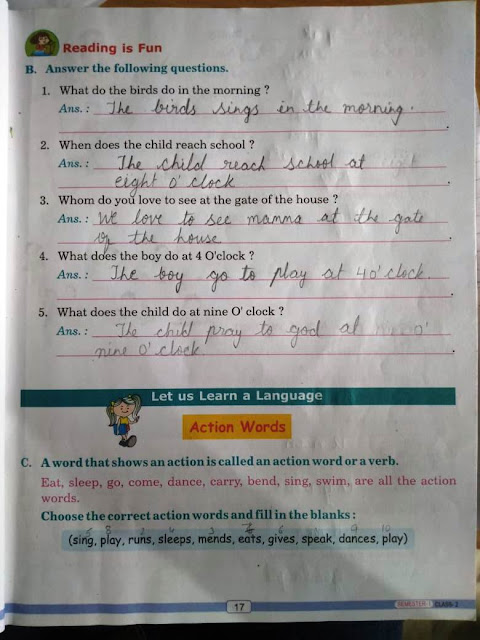 Reading is Fun
B. Answer the following questions.
1. What do the birds do in the morning ?
Ans. : The birds sings in the morning.
2. When does the child reach school ?
Ans. : The child reach school at eight
eight O' clock
3. Whom do you love to see at the gate of the house ?
Ans. : We love to see mamma at the gate
of the house
4. What does the boy do at 4 O'clock ?
Ans. : The boy go to play at 4 O' clock.
5. What does the child do at nine O' clock ?
Ans. : The child pray to god at O'
nine O' clock
Let us Learn a Language
Action Words
C. A word that shows an action is called an action word or a verb.
Eat, sleep, go, come, dance, carry, bend, sing, swim, are all the action
words.
Choose the correct action words and fill in the blanks :
(sing, play, runs, sleeps, mends, eats, gives, speak, dances, play)
17
SEMESTER 1 CLASS-2